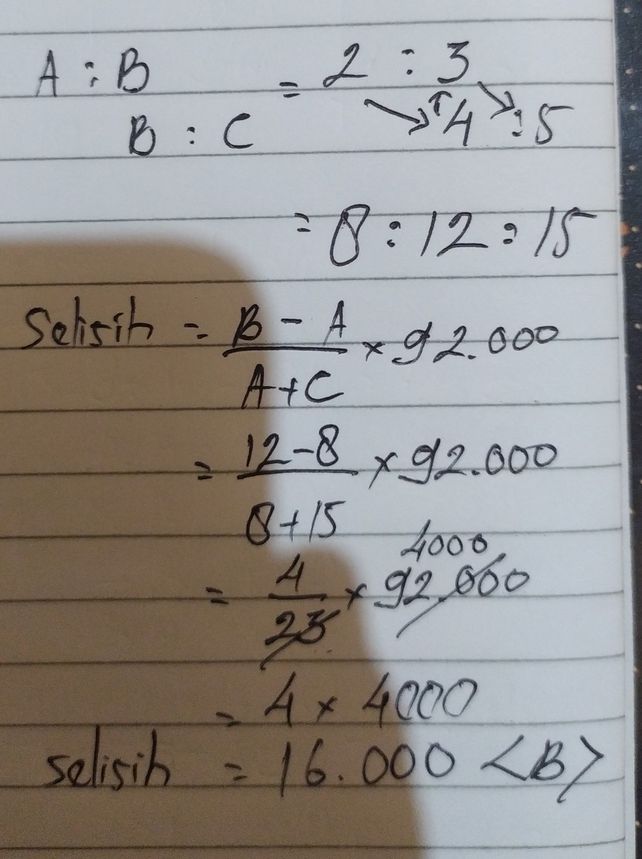 A : B = 2 : 3
B : C → 4 : 5
= 8 : 12 : 15
Selisih = B - A / A + C × 92.000
= 12 - 8 / 8 + 15 × 92.000
4000
= 4 / 23 × 92.000
= 4 × 4000
selisih = 16.000 <B>